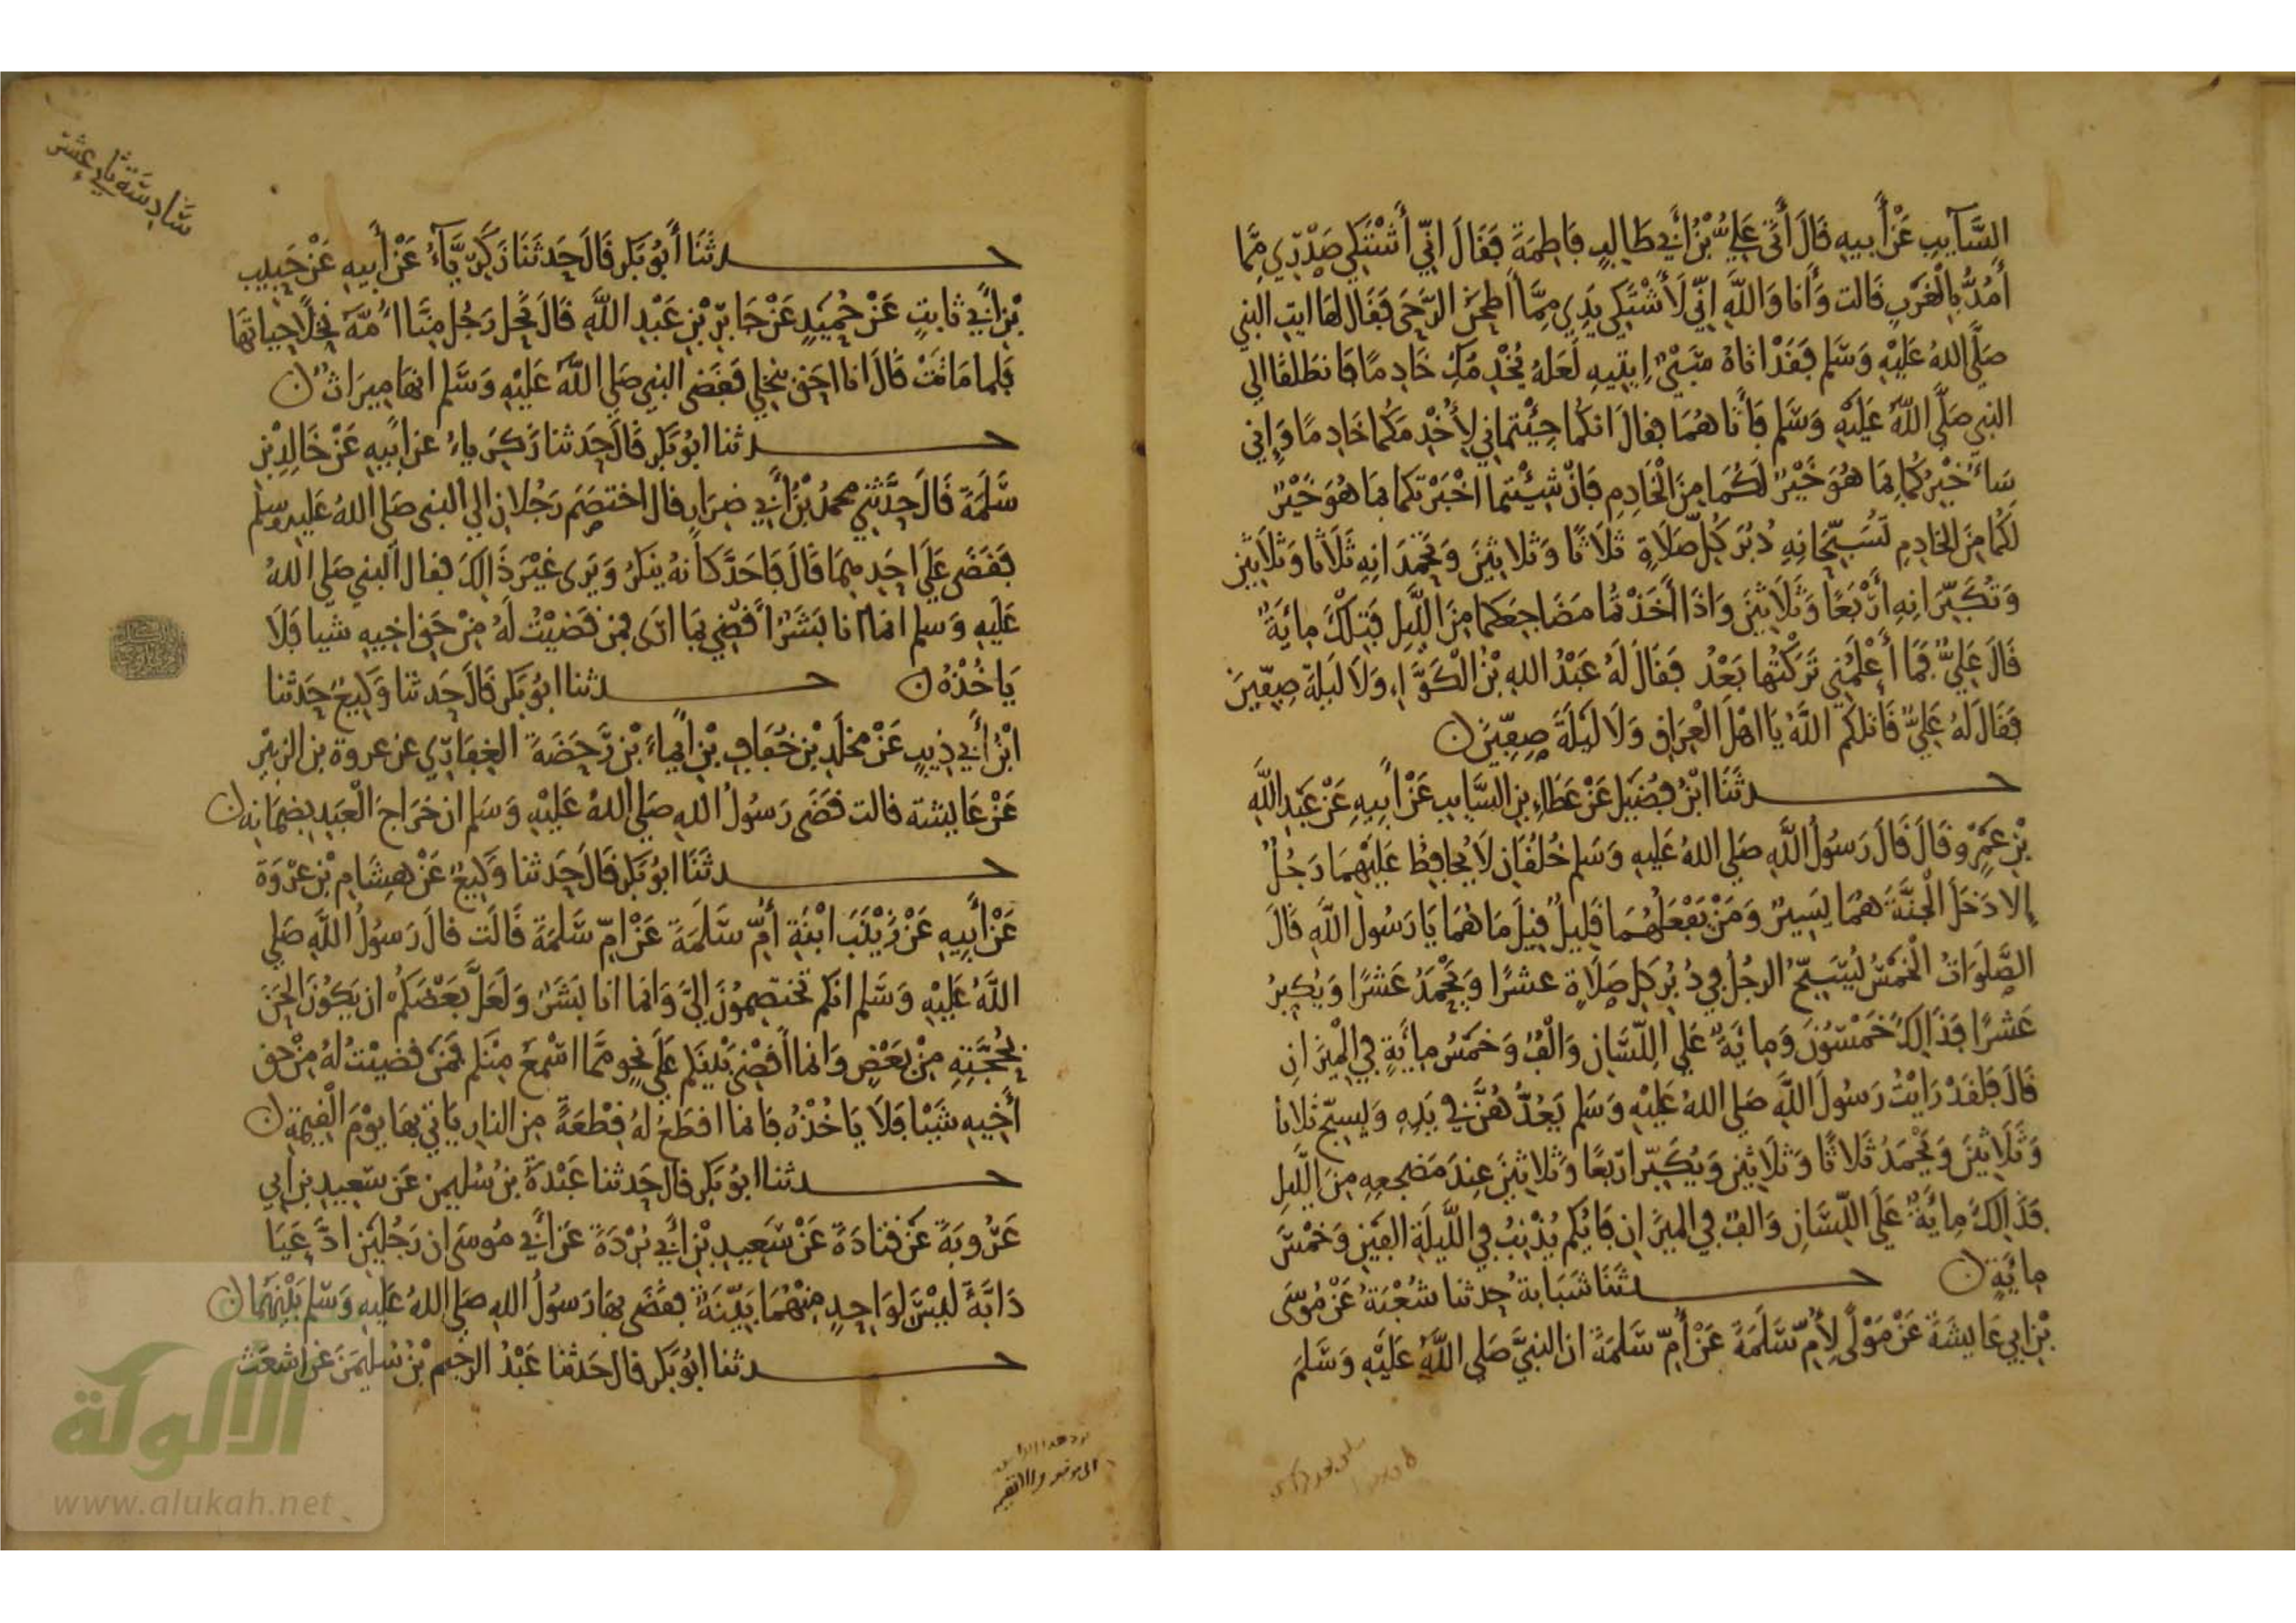 السَّآيِبِ عَنْ أَبِيهِ قَالَ أَتَى عَلِيُّ بْنُ أَبِي طَالِبٍ فَاطِمَةَ فَقَالَ إِنِّي أَشْتَكِي صَدْرِي مِمَّا
أَمُدُّ بِالْغَرْبِ قَالَت وَأَنَا وَاللَّهِ إِنِّي لَأَشْتَكِي يَدِي مِمَّا أَطْحَنُ الرَّحَى فَقَالَ لَهَا ايتِ النبي
صَلَّى اللهُ عَلَيْهِ وَسَلم فَقَدْ اتَاهُ سَبْيٌ اِيتِيهِ لَعَلهُ يُخْدِمُكِ خَادِمًا فَانطَلقَا الي
النبي صَلَّى اللَّهُ عَلَيْهِ وَسَلم فَأَتَاهُمَا فقالَ انكُمَا جِئْتُمَانِي لِأُخْدِمَكُمَا خَادِمًا وَإِنِي
سَأُخْبِرُكُمَا بِمَا هُوَ خَيْرٌ لَكُمَا مِنَ الْخَادِمِ فَإنْ شِيْتُما اخْبَرْتكما بمَا هُوَ خَيْرٌ
لَكُمَا مِنَ الخادِمِ تُسَبِّحَانِهِ دُبُرَ كُلِّ صَلَاةٍ ثَلَاثًا وَثَلَاثِينَ وَتَحْمَدَانِهِ ثَلَاثا وَثَلَاثِينَ
وَتُكَبِّرَانِهِ أَرْبَعًا وَثَلَاثِينَ وَاذَا أَخَذْتُمَا مَضَاجِعَكما مِنَ اللَّيلِ فَتِلْكَ مِائَةٌ
قَالَ عَلِيٌّ فَمَا أَعْلَمُنِي تَرَكْتُهَا بَعْدُ فَقَالَ لَهُ عَبْدُ اللهِ بْنُ الْكَوَّاءِ وَلَا لَيلَةَ صِفِّينَ
فَقَالَ لَهُ عَلِيٌّ قَاتلكُم اللَّهُ يَا اهْلَ الْعِرَاقِ وَلَا لَيْلَةَ صِفِّينَ ن
حدثَنَا ابْنُ فُضَيْلٍ عَنْ عَطَاءِ بنِ السَّايِبِ عَنْ أَبِيهِ عَنْ عَبْدِ اللَّهِ
بْنِ عَمْرٍو قَالَ قَالَ رَسُولُ اللَّهِ صَلى اللهُ عَلَيهِ وَسَلم خُلُقَانِ لَا يُحافِظُ عَلَيْهِمَا رَجُلٌ
إِلا دَخَلَ الْجَنَّةَ هُمَا يَسِيرٌ وَمَنْ يَفْعَلُهُمَا قَلِيلٌ قِيلَ مَا هُمَا يَا رَسُولَ اللَّهِ قَالَ
الصَّلَوَاتُ الْخَمْسُ يُسَبِّحُ الرجُلُ فِي دُبُرِ كلِ صَلَاةٍ عشْرًا وَيَحْمَدُ عَشْرًا وَيُكَبِرُ
عَشْرًا فَذَالِكَ خَمْسُونَ وَمِائَةٌ عَلَى اللِّسَانِ وَأَلْفٌ وَخَمْسُ مِائَةٍ فِي الْمِيزَانِ
قَالَ فَلَقَدْ رَايْتُ رَسُولَ اللَّهِ صَلى اللهُ عَلَيْهِ وَسَلم يَعُدُّهُنَّ فِي يَدِهِ وَيسبِّح ثَلَاثًا
وَثَلَاثِينَ وَيَحْمَدُ ثَلَاثًا وَثَلَاثِينَ وَيُكَبِّرُ ارْبَعًا وَثَلاثِينَ عِندَ مَضجعِهِ مِنَ اللَّيلِ
فَذَالِكَ مِائَةٌ عَلَى اللِّسَانِ وَالفٌ فِي الْمِيزَانِ فَايُكُم يُذْنِبُ فِي اللَّيلَةِ الفَيْنِ وَخَمْسَ
مِائَةٍ ن حدثَنَا شَبَابَةُ حدثنا شُعْبَةُ عَنْ مُوسَى
بْنِ ابِي عَايِشَةَ عَنْ مَوْلًى لِأُمِّ سَلَمَةَ عَنْ أُمِّ سَلَمَةَ ان النبيَّ صَلى اللَّهُ عَلَيْهِ وَسَلمَ
سَادِسَة ثاني عشر
حدثَنَا أَبُو بَكر قَالَ حَدثَنَا زَكَرِيَّآءُ عَنْ أَبِيهِ عَنْ حَبِيبِ
بْنِ أَبِي ثَابِتٍ عَنْ حُمَيْدٍ عَنْ جَابِرِ بْنِ عَبْدِ اللَّهِ قَالَ نَحَلَ رَجُلٌ مِنَّا أُمَّهُ نَخْلًا حياتَهَا
فَلما مَاتَتْ قَالَ انا احَق بنَخلِي فقَضى النبي صَلى اللَّهُ عَلَيْهِ وَسَلم انهَا مِيرَاثٌ ن
حدثنا ابُو بَكر قَالَ حَدثنا زَكَرِياءُ عن ابِيهِ عَنْ خَالِدِ بْنِ
سَلَمَةَ قَالَ حَدَّثَنِي محمدُ بْنُ أَبِي ضِرَارٍ قال اختصَمَ رَجُلانِ الي النبي صَلى اللهُ عَليهِ وسلم
فقَضَى عَلَى احَدِهِمَا قَالَ فَاحَدَّ كأنهُ ينكرُ وَيَرَى غَيْرَ ذَالِكَ فقال النبي صَلى اللهُ
عَلَيهِ وَسلم انمَا انا بَشَرٌ اقْضِي بِمَا ارَى فمن قَضيْتُ لَهُ مِنْ حَق اخِيهِ شيا فَلَا
يَاخُذْهُ ن حدثنا ابُو بَكر قَالَ حَدثنا وَكِيعٌ حَدثنا
ابْنُ أَبِي ذِيبٍ عَنْ مَخْلَدِ بْنِ خُفَافِ بْنِ إيمَاءَ بْنِ رَحَضَةَ الغِفَارِي عن عروة بن الزبير
عَنْ عَايشة قالت قَضَى رَسُولُ اللهِ صَلى اللهُ عَلَيْهِ وَسَلم ان خَرَاجَ الْعَبْدِ بِضَمَانِهِ ن
حدثَنَا ابُو بَكر قَالَ حَدثنا وَكِيعٌ عَنْ هِشَامِ بْنِ عُرْوَةَ
عَنْ أَبِيهِ عَنْ زَيْنَبَ ابْنَةِ أُمِّ سَلَمَةَ عَنْ امِّ سَلَمَةَ قَالَت قالَ رَسُولُ اللَّهِ صَلى
اللَّهُ عَلَيْهِ وَسَلم انكم تَختصِمُونَ إِلَيَّ وَانمَا انا بَشَرٌ وَلَعَلَّ بَعْضَكُم ان يَكُونَ الْحَنَ
بِحُجَّتِهِ مِنْ بَعْضٍ وَانما أَقْضِي بَيْنَكم عَلَى نَحْوٍ مِمَّا اسْمَعُ مِنْكم فَمَن قَضيْتُ لَهُ مِنْ حق
أَخِيهِ شَيْئا فَلَا يَاخُذْهُ فَانما اقطَعُ لَهُ قِطْعَةً مِن النارِ يَاتِي بهَا يوْمَ الْقِيمَةِ ن
حدثنا ابُو بَكر قال حَدثنا عَبْدَةُ بنُ سُليمن عَن سَعِيدِ بنِ أبي
عَرُوبَةَ عَنْ قتَادَةَ عَنْ سَعِيدِ بْنِ أَبِي بُرْدَةَ عَن أَبِي مُوسَى ان رَجُلَيْنِ ادَّعَيَا
دَابَّةً لَيْسَ لِوَاحِدٍ مِنْهُمَا بَيِّنَةٌ فقَضَى بهَا رَسُولُ اللهِ صَلى اللهُ عَلَيهِ وَسَلم بَيْنَهُمَا ن
حدثنا ابُو بَكر قال حَدثنا عَبْدُ الرحيم بْنُ سُليمَنَ عَن اشعَث
الألوكة
www.alukah.net